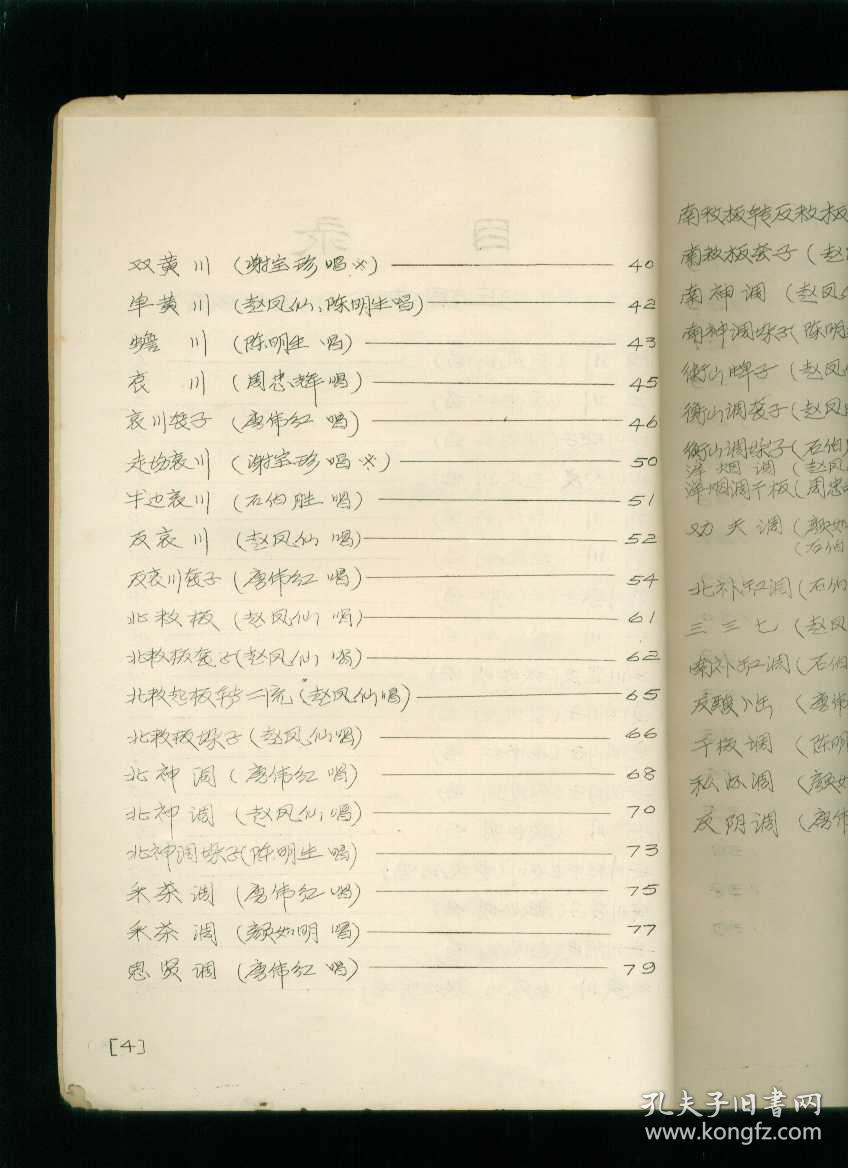 双黄川 (谢宝珍唱※) 40
单黄川 (赵凤仙、陈明生唱) 42
蟾川 (陈明生唱) 43
哀川 (周忠辉唱) 45
哀川套子 (唐伟红唱) 46
走场哀川 (谢宝珍唱※) 50
半边哀川 (石伯胜唱) 51
反哀川 (赵凤仙唱) 52
反哀川套子 (唐伟红唱) 54
北救板 (赵凤仙唱) 61
北救板套子 (赵凤仙唱) 62
北救起板转二流 (赵凤仙唱) 65
北救板垛子 (赵凤仙唱) 66
北神调 (唐伟红唱) 68
北神调 (赵凤仙唱) 70
北神调垛子 (陈明生唱) 73
采茶调 (唐伟红唱) 75
采茶调 (颜如明唱) 77
思贤调 (唐伟红唱) 79
[4]
南救板转反救板
南救板套子 (赵
南神调 (赵凤
南神调垛子 (陈明
衡山牌子 (赵凤
衡山调套子 (赵凤
衡山调垛子 (石伯
洋烟调 (赵凤
洋烟调干板 (周忠
功夫调 (颜如
(石伯
北补缸调 (石伯
三三七 (赵凤
南补缸调 (石伯
反 (唐伟
干板调 (陈明
调 (颜如
反阴调 (唐伟
目录
孔夫子旧书网
www.kongfz.com